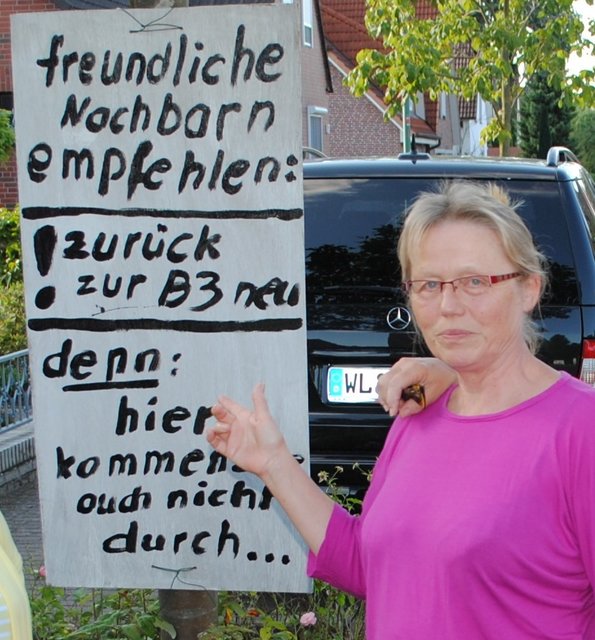 freundliche
Nachbarn
empfehlen:
! zurück
zur B3 neu
denn:
hier
kommen
auch nicht
durch...
WL